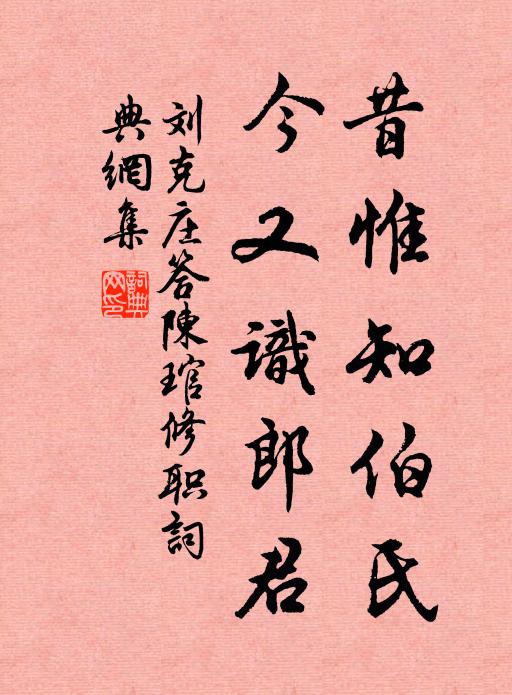 昔惟知伯氏
今又識郎君
刘克庄答陳琯修职詞
典網集
詞典网印